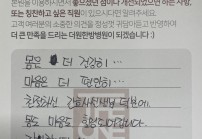 본원을 이용하시면서 좋았었던 점이나 개선되었으면 하는 사항,
또는 칭찬하고 싶은 직원이 있으시다면 알려주세요.
고객 여러분의 소중한 의견을 정성껏 귀담아듣고 반영하여
더 큰 만족을 드리는 더원한방병원이 되겠습니다. :)
몸은 더 건강히 ...
마음은 더 편안히 ...
친절하신 간호사선생님 덕분에.
몸도 마음도 힐링되어갑니다.